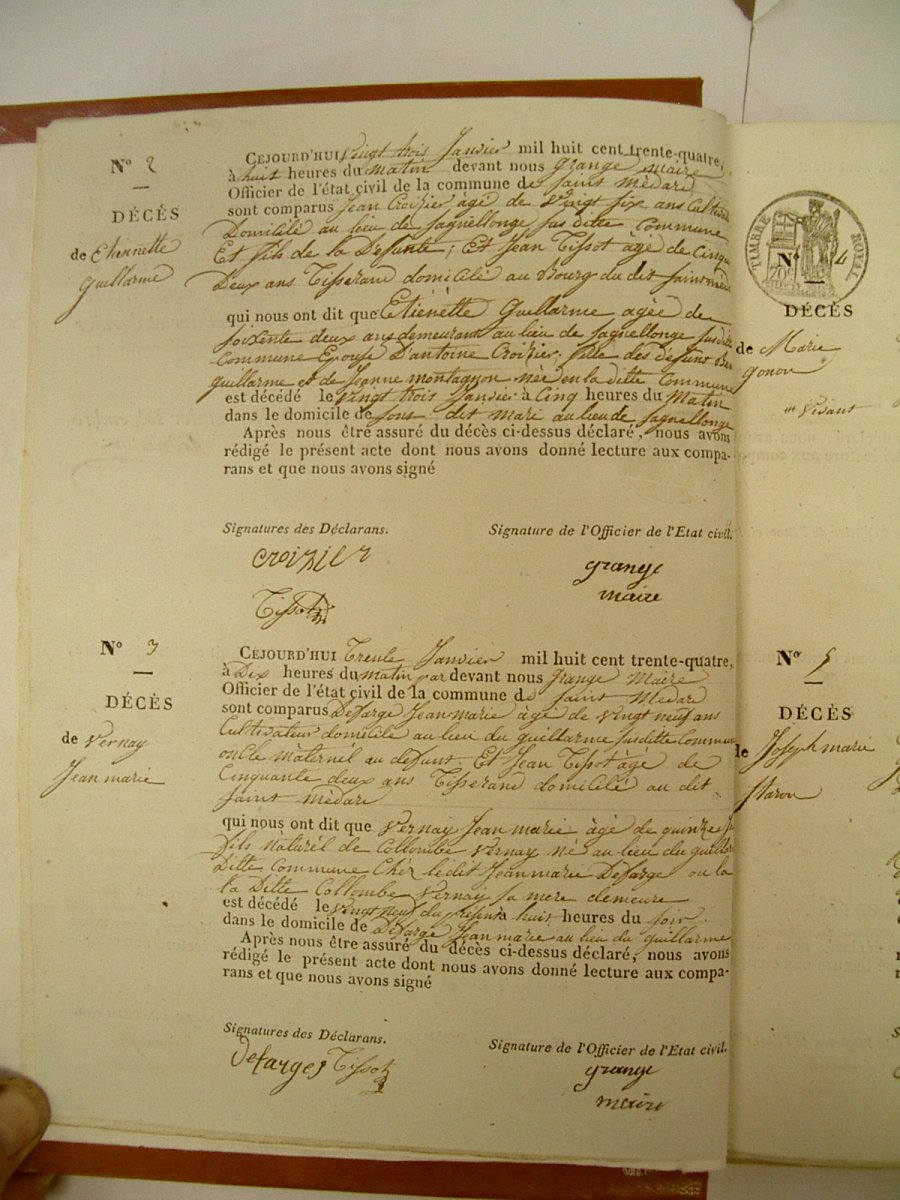 N° 2
DÉCÈS
de Etiennette
guillarme
CEJOURD'HUI vingt trois Janvier mil huit cent trente-quatre,
à huit heures du matin devant nous grange maire
Officier de l'état civil de la commune de saint Mèdard
sont comparus Jean Croizier àgé de vingt six ans Cultiva
Domicilé au lieu de sagnellonge sus ditte Commune
Et fils de la Defunte; Et Jean Tissot àgé de Cinqu
Deux ans Tisserand domicilé au Bourg du dit saint mèd
qui nous ont dit que Etienètte Guillarme agée de
soixente deux ans demeurant au lieu de sagnellonge susditte
Commune Epouse D'antoine Croizier fille des defunt
guillarme et de Jeanne montagnon née en la ditte Commune
est décédé le vingt trois Janvier à Cinq heures du Matin
dans le domicile de sous dit mari au lieu de sagnellonge
Après nous être assuré du décès ci-dessus déclaré, nous avons
rédigé le présent acte dont nous avons donné lecture aux compa-
rans et que nous avons signé
Signatures des Déclarans.
Signature de l'Officier de l'Etat civil.
croizier
grange
maire
Tissot
N° 3
DÉCÈS
de Vernay
Jean marie
CEJOURD'HUI Trente Janvier mil huit cent trente-quatre,
à Dix heures du matin par devant nous grange Maire
Officier de l'état civil de la commune de saint Mèdard
sont comparus Defarge Jean marie àgé de vingt neuf ans
Cultivateur domicilé au lieu du guillarme susditte Commune
oncle màternel au defunt. Et Jean Tissot àgé de
Cinquante deux ans Tisserand domicilé au dit
saint mèdard
qui nous ont dit que Vernay Jean marie àgé de quinze
fils nàturèl de Collombe Vernay né au lieu du guillar
Ditte Commune Chér ledit Jean marie Defarge ou la
la Ditte Collombe Vernay sa mere demeure
est décédé le vingt neuf du présent à huit heures du soir
dans le domicile de Defarge Jean marie au lieu du guillarme
Après nous être assuré du décès ci-dessus déclaré, nous avons
rédigé le présent acte dont nous avons donné lecture aux compa-
rans et que nous avons signé
Signatures des Déclarans.
Signature de l'Officier de l'Etat civil.
defarges Tissot
grange
maire
TIMBRE ROYAL
N° 4
DÉCÈS
de Marie
gonon
N° 5
DÉCÈS
de Joseph marie